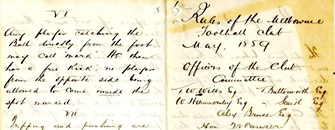 VI
Any player catching the
Ball directly from the foot
may call mark. He then
has a free kick; no player
from the opposite side being
allowed to come inside the
spot marked.
VII
Tripping and pushing
Rules of the Melbourne
Football Club
May, 1859
Officers of the Club
Committee
T.W. Wills Esq T. Butterworth Esq
W. Hammersley Esq Smith Esq
Alex Bruce Esq